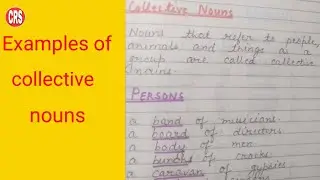 CRS
Examples of
collective
nouns
Collective Nouns
Nouns that refer to people,
animals and things as a
group are called collective
PERSONS
a band of musicians.
a board of directors.
a body of men.
a bunch of crooks.
a caravan of gypsies